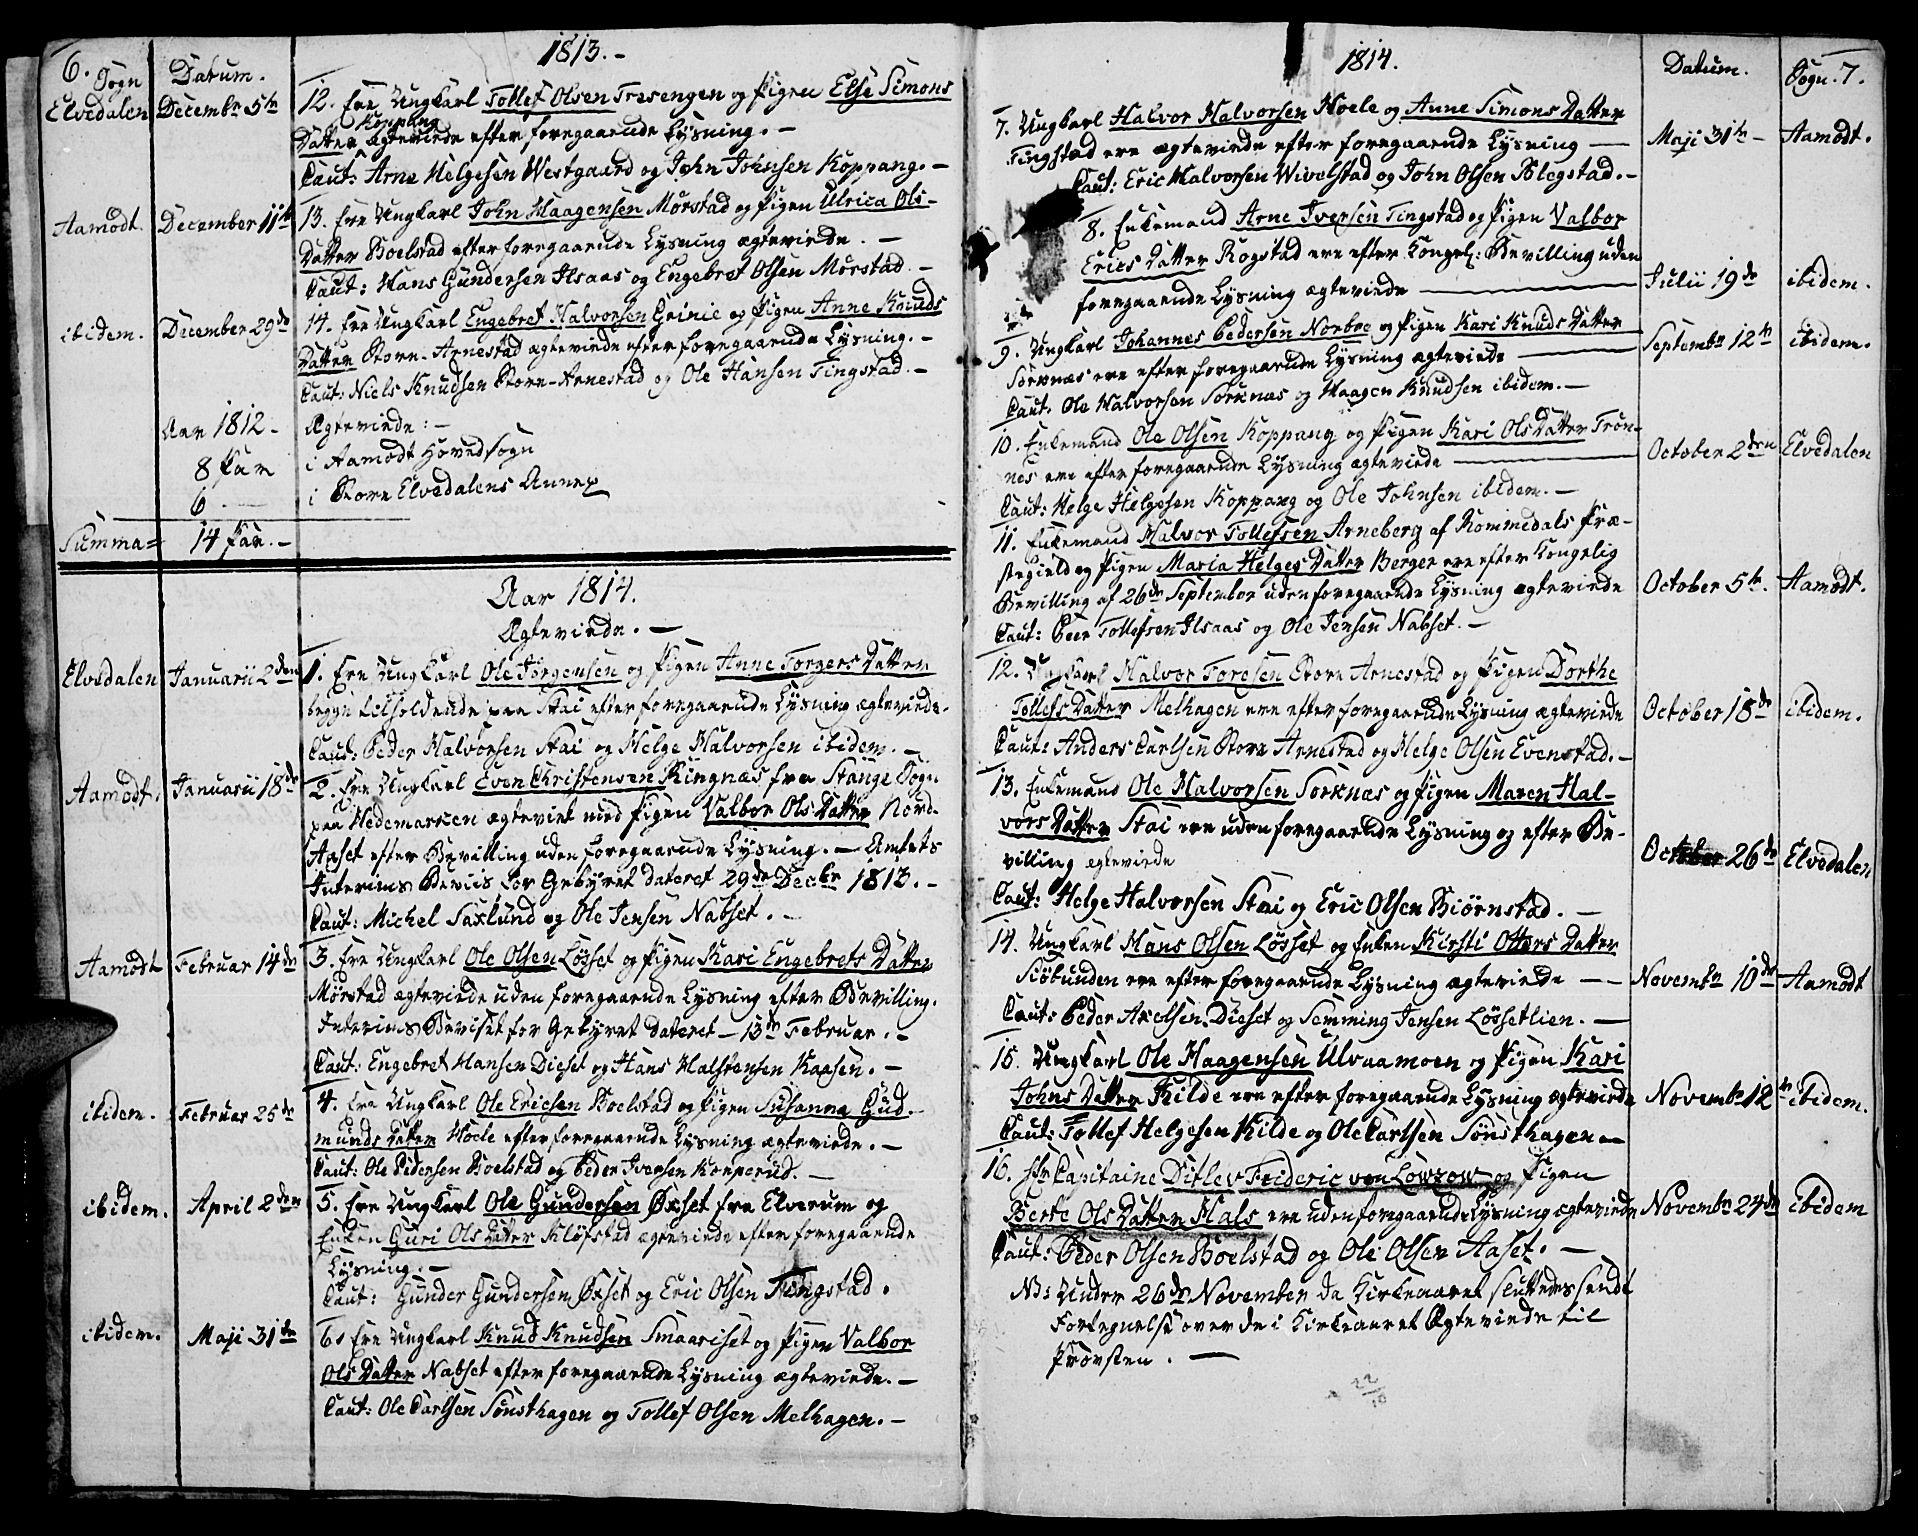 6.
1813.-
Sogn Datum.
Elvedalen Decembr 5te 12. Ere Ungkarl Tollef Olsen Tresengen og Pigen Else Simons
Koppang
Datter ægteviede efter foregaaende Lysning. -
Caut: Arne Helgesen Westgaard og John Johnsen Koppang. -
Aamodt. December 11te 13. Ere Ungkarl John Haagensen Mørstad og Pigen Ulrica Ols-
Datter Boelstad efter foregaaende Lysning ægteviede. -
Caut: Hans Gundersen Ilsaas og Engebret Olsen Mørstad. -
ibidem. December 29de 14. Ere Ungkarl Engebret Halvorsen Grinie og Pigen Anne Knuds
Datter Store-Arnestad ægteviede efter foregaaende Lysning. -
Caut: Niels Knudsen Store-Arnestad og Ole Hansen Tingstad. -
Aar 1812 - Ægteviede: -
8 Par i Aamodt Hovedsogn
6 - i Store Elvedalens Annex
Summa = 14 Par. -
Aar 1814.
Ægteviede. -
Elvedalen Januarii 2den 1. Ere Ungkarl Ole Jørgensen og Pigen Anne Torgers Datter
begge tilholdende paa Stai efter foregaaende Lysning ægteviede.
Caut: Peder Halvorsen Stai og Helge Halvorsen ibidem. -
Aamodt. Januarii 18de 2. Ere Ungkarl Even Christensen Ringnæs fra Stange Sogn
paa Hedemarken ægteviet med Pigen Valbor Ols Datter Nord-
Aaset efter Bevilling uden foregaaende Lysning. - Amtets
Interims Beviis for Gebyret dateret 29de Decbr 1813. -
Caut: Michel Saxlund og Ole Jensen Nabset. -
Aamodt Februar 14de 3. Ere Ungkarl Ole Olsen Løsset og Pigen Kari Engebrets Datter
Mørstad ægteviede uden foregaaende Lysning efter Bevilling.
Interims Beviset for Gebyret dateret - 13te Februar. -
Caut: Engebret Hansen Dieset og Hans Halstensen Kaasen. -
ibidem. Februar 25de 4. Ere Ungkarl Ole Ericsen Boelstad og Pigen Susanna Gud-
munds Datter Hoele efter foregaaende Lysning ægteviede. -
Caut: Ole Pedersen Boelstad og Peder Iversen Kornperud. -
ibidem. April 2den 5. Ere Ungkarl Ole Gundersen Øxset fra Elverum og
Enken Guri Ols Datter Kløfstad ægteviede efter foregaaende
Lysning. -
Caut: Gunder Gundersen Øxset og Eric Olsen Tingstad.
ibidem. Maji 31te 6. Ere Ungkarl Knud Knudsen Smaariset og Pigen Valbor
Ols Datter Nabset efter foregaaende Lysning ægteviede. -
Caut: Ole Carlsen Sønsthagen og Tollef Olsen Melhagen. -
1814. Datum. Sogn. 7.
7. Ungkarl Halvor Halvorsen Hoele og Anne Simons Datter
Tingstad ere ægteviede efter foregaaende Lysning - Maji 31te - Aamodt.
Caut: Eric Halvorsen Wivelstad og John Olsen Blegstad. -
8. Enkemand Arne Iversen Tingstad og Pigen Valbor
Erics Datter Rogstad ere efter Kongel: Bevilling uden
foregaaende Lysning ægteviede - Julii 19de ibidem.
9. Ungkarl Johannes Pedersen Norbye og Pigen Kari Knuds Datter
Sorknæs ere efter foregaaende Lysning ægteviede - Septembr 12te ibidem.
Caut. Ole Halvorsen Sorknæs og Haagen Knudsen ibidem. -
10. Enkemand Ole Olsen Koppang og Pigen Kari Ols Datter Trøn-
nes ere efter foregaaende Lysning ægteviede - October 2den Elvedalen
Caut: Helge Helgesen Koppang og Ole Johnsen ibidem. -
11. Enkemand Halvor Tollefsen Arneberg af Rommedals Præ-
stegield og Pigen Maria Helges Datter Berger ere efter Kongelig
Bevilling af 26de September uden foregaaende Lysning ægteviede October 5te. Aamodt.
Caut: Peer Tollefsen Ilsaas og Ole Jensen Nabset. -
12. Ungkarl Halvor Toresen Store Arnestad og Pigen Dorthe
Tollefs Datter Melhagen ere efter foregaaende Lysning ægteviede October 18de ibidem.
Caut: Anders Carlsen Store Arnestad og Helge Olsen Evenstad. -
13. Enkemand Ole Halvorsen Sorknæs og Pigen Maren Hal-
vors Datter Stai ere uden foregaaende Lysning og efter Be-
villing ægteviede October 26de Elvedalen
Caut: Helge Halvorsen Stai og Eric Olsen Biørnstad. -
14. Ungkarl Hans Olsen Løsset og Enken Kirsti Otters Datter
Siøbunden ere efter foregaaende Lysning ægteviede - - Novembr 10de Aamodt
Caut: Peder Axelsen Dieset og Semming Jensen Løssetlien. -
15. Ungkarl Ole Haagensen Ulvaamoen og Pigen Kari
Johns Datter Kilde ere efter foregaaende Lysning ægteviede Novembr 12te ibidem.
Caut: Tollef Helgesen Kilde og Ole Carlsen Sønsthagen -
16. Hr Capitaine Ditlev Frideric von Lowzow og Pigen
Berte Ols Datter Hals ere uden foregaaende Lysning ægteviede Novembr 24de ibidem
Caut: Peder Olsen Boelstad og Ole Olsen Aaset. -
NB: Under 26de November da Kirkeaaret sluttedes sendt
Fortegnelse over de i Kirkeaaret Ægteviede til
Provsten. -